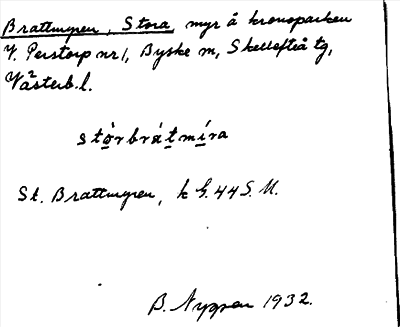 Brattmyren, Stora, myr å kronoparken
V. Perstorp nr 1, Byske sn, Skellefteå tg,
Västerb. l.
stòrbrátmíra
St. Brattmyren, k G. 44 S. U.
B. Nyggen 1932.